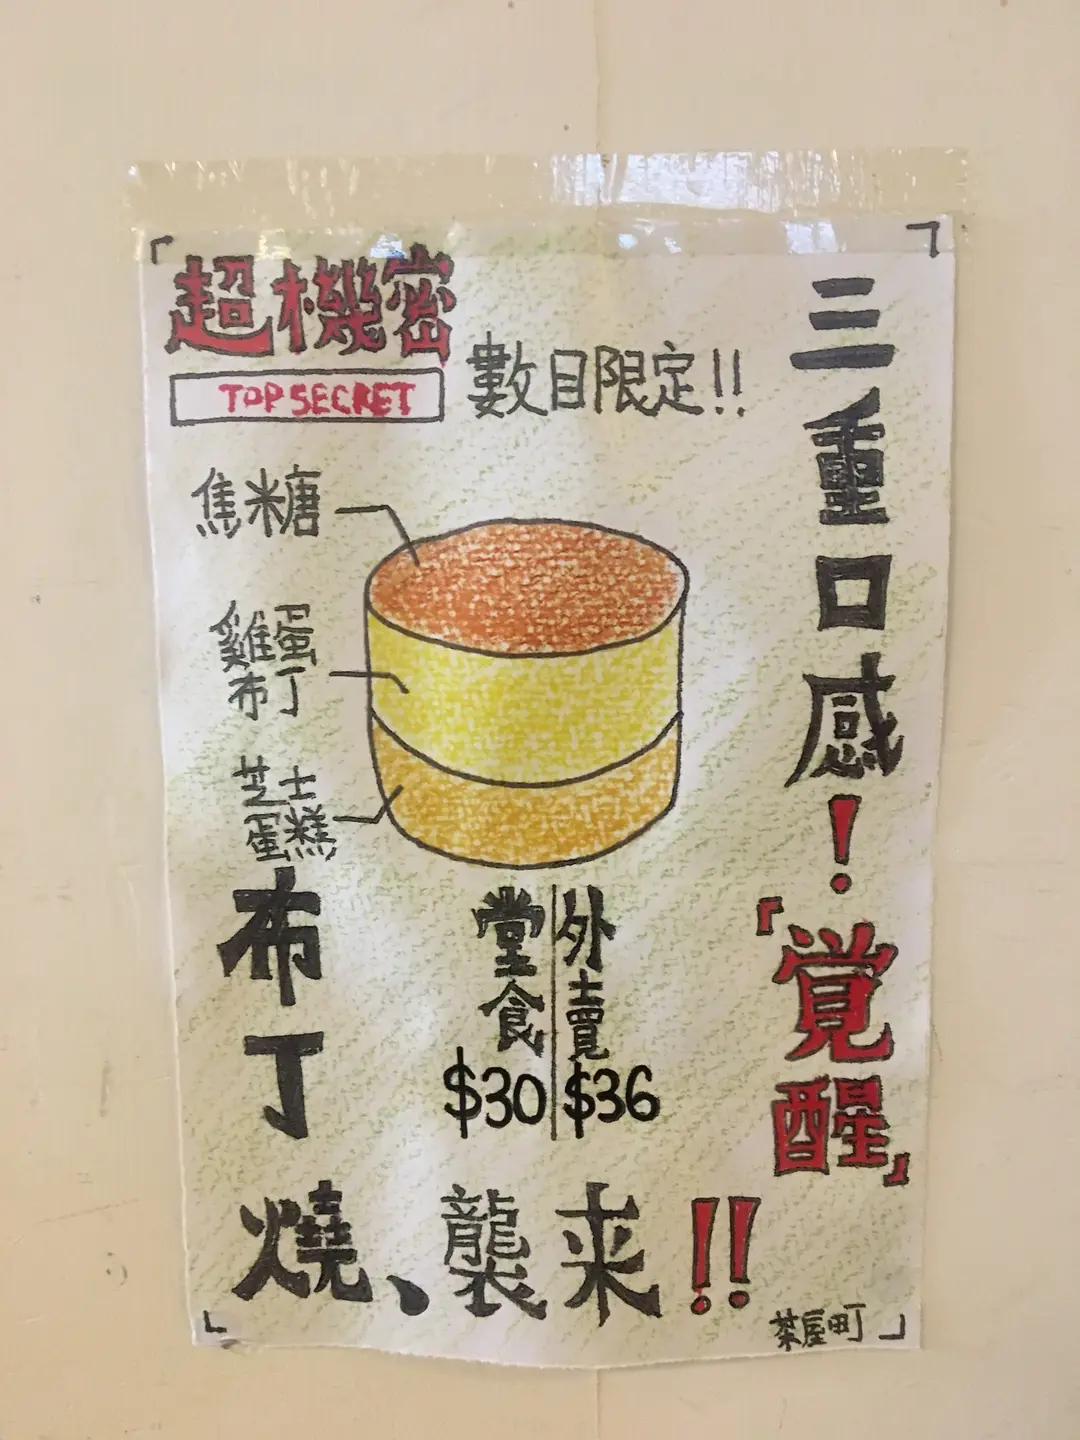 超機密
TOP SECRET
數目限定!!
三重口感!
『覚醒』
焦糖
雞蛋
布丁
芝士
蛋糕
堂食
$30
外賣
$36
布丁
燒、襲来!!
茶屋町